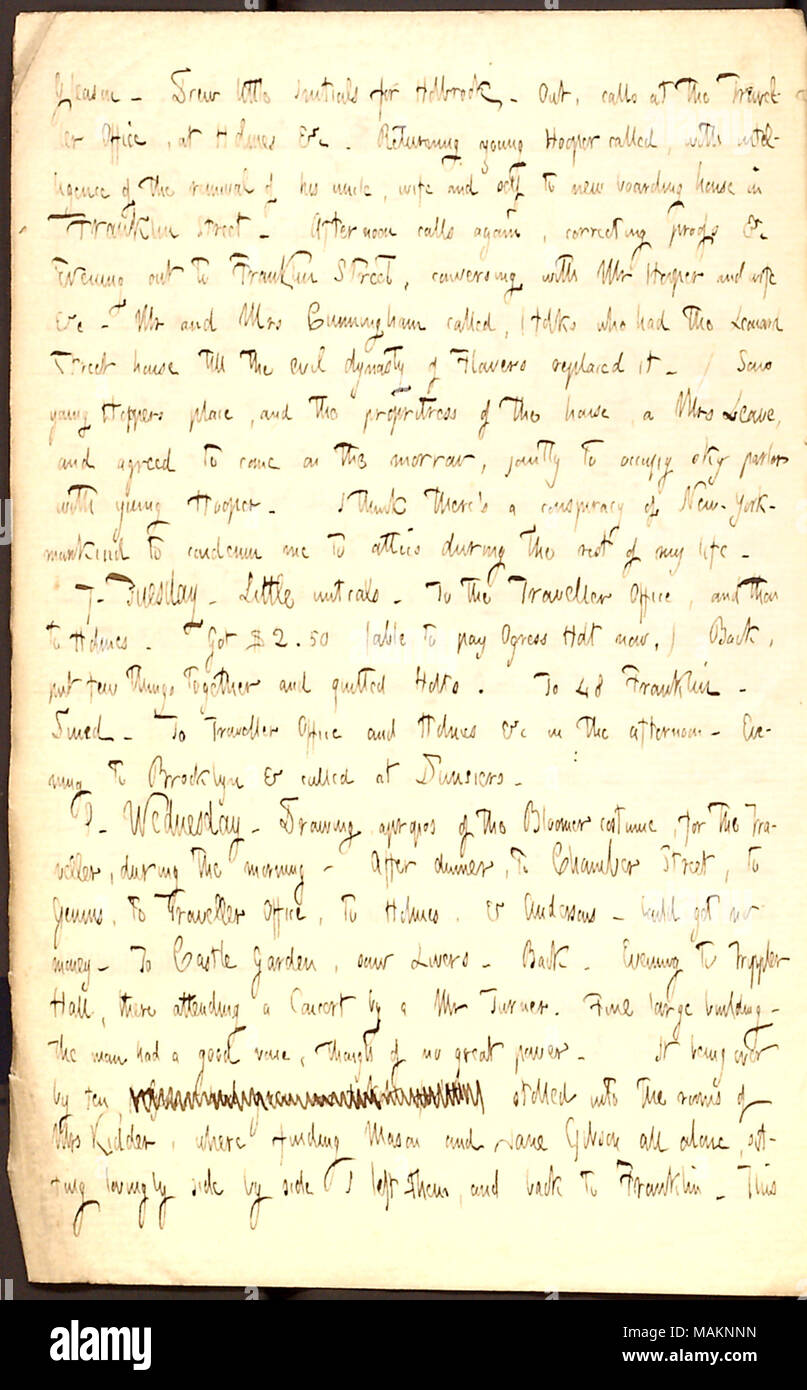 Gleason - Drew little initials for Holbrook. Out, calls at the Travel-
ler Office, at Holmes &c. Returning young Hooper called, with intel-
ligence of the removal of his uncle, wife and self to new boarding house in
Franklin Street - Afternoon calls again, correcting proofs &c
Evening out to Franklin Street, conversing with Mr Hooper and wife
&c - Mr and Mrs Cunningham called, (folks who had the Leonard
Street house till the evil dynasty of Flavers replaced it -) Saw
young Hoppers place, and the proprietress of the house, a Mrs Leave,
and agreed to come on the morrow, jointly to occupy sky parlor
with young Hooper - I think there's a conspiracy of New-York-
mankind to condemn me to attics during the rest of my life -
7 - Tuesday - Little initials - To the Traveller Office, and then
to Holmes. Got $2.50 (able to pay Ogress Holt now,) Back,
put few things together and quitted Holts. To 48 Franklin -
Dined - To Traveller Office and Holmes &c in the afternoon - Eve-
ning to Brooklyn & called at Dunsiers -
Wednesday - Drawing apropos of the Bloomer costume, for the Tra-
veller, during the morning - After dinner, to Chamber Street, to
Genins, to Traveller Office, to Holmes, & Andersons - Could get no
money - To Castle Garden, saw Livers - Back - Evening to Tryppler
Hall, there attending a Concert by a Mr Turner. Fine large building -
the man had a good voice, though of no great power - It being over
by ten, strolled into the rooms of
Mrs Kidder, where finding Mason and Jane Gibson all alone, sit-
ting lovingly side by side I left them, and back to Franklin - This
alamy
Image ID: MAKNNN
www.alamy.com